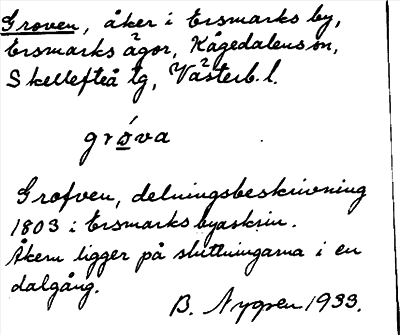 Groven, åker i Ersmarks by,
Ersmarks ägor, Kågedalens sn,
Skellefteå tg, Västerb. l.
gróva
Grofven, delningsbeskrivning
1803 i Ersmarks byaskrin.
Åkern ligger på sluttningarna i en
dalgång.
B. Nygren 1933.